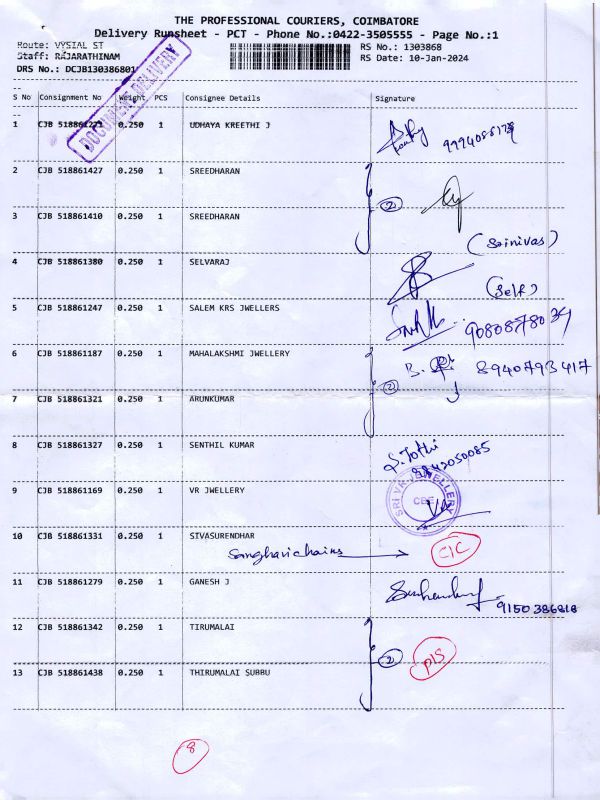 THE PROFESSIONAL COURIERS, COIMBATORE
Delivery Runsheet - PCT - Phone No.:0422-3505555 - Page No.:1
Route: VYSIAL ST
Staff: RAJARATHINAM
DRS No.: DCJB130386801
RS No.: 1303868
RS Date: 10-Jan-2024
DOCUMENT DELIVERY
S No Consignment No Weight PCS Consignee Details Signature
1 CJB 0.250 1 UDHAYA KREETHI J
2 CJB 518861427 0.250 1 SREEDHARAN
2
3 CJB 518861410 0.250 1 SREEDHARAN
(Srinivas)
4 CJB 518861380 0.250 1 SELVARAJ
(Self)
5 CJB 518861247 0.250 1 SALEM KRS JWELLERS
9080878034
6 CJB 518861187 0.250 1 MAHALAKSHMI JWELLERY
8940793417
2
7 CJB 518861321 0.250 1 ARUNKUMAR
8 CJB 518861327 0.250 1 SENTHIL KUMAR
S. Jothi
9842050085
9 CJB 518861169 0.250 1 VR JWELLERY
SRI VR JEWELLERY
CBE
10 CJB 518861331 0.250 1 SIVASURENDHAR
Sanghavi chains
CIC
11 CJB 518861279 0.250 1 GANESH J
9150386818
12 CJB 518861342 0.250 1 TIRUMALAI
2
PIS
13 CJB 518861438 0.250 1 THIRUMALAI SUBBU
8